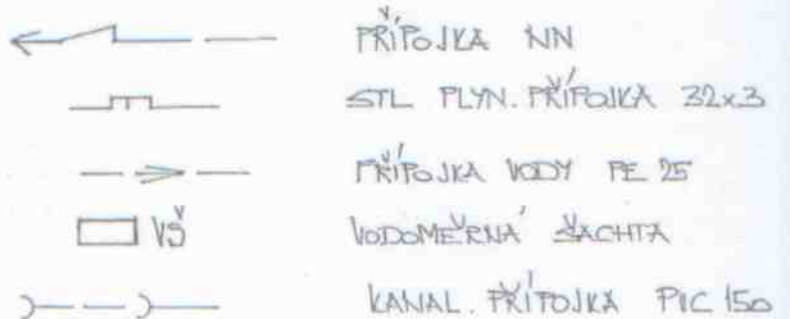 PŘÍPOJKA NN
STL PLYN. PŘÍPOJKA 32x3
PŘÍPOJKA VODY PE 25
VŠ VODOMĚRNÁ ŠACHTA
KANAL. PŘÍPOJKA PVC 150